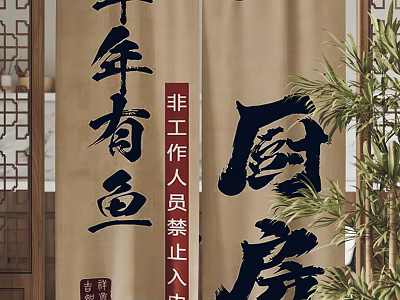 年年有鱼
非工作人员禁止入内
厨房